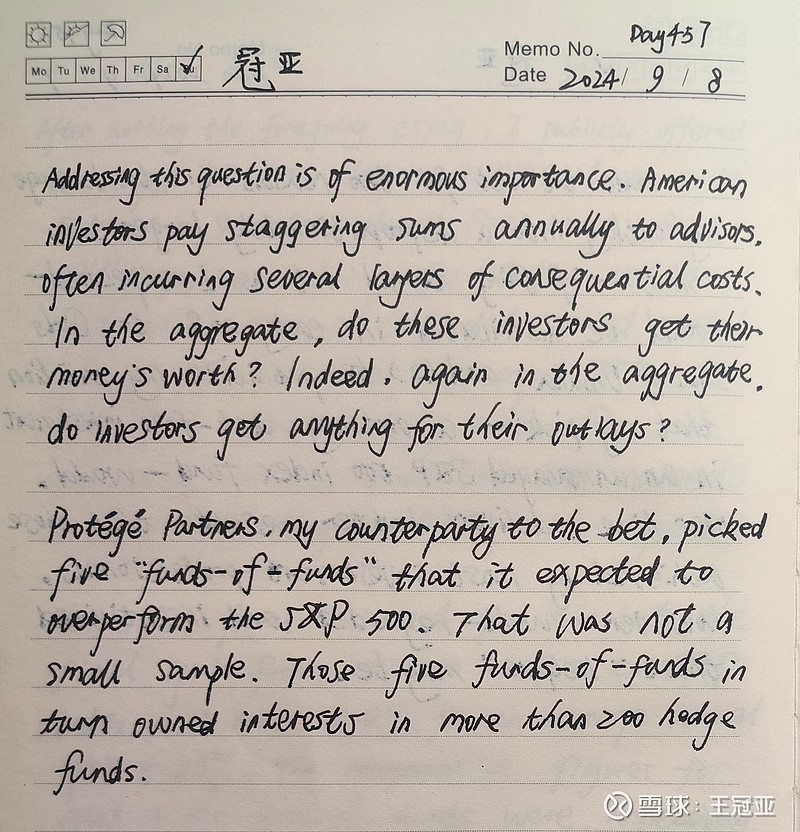 Memo No. Day457
Mo Tu We Th Fr Sa Su 冠亚
Date 2024/ 9 / 8
Addressing this question is of enormous importance. American
investors pay staggering sums annually to advisors,
often incurring several layers of consequential costs.
In the aggregate, do these investors get their
money's worth? Indeed, again in the aggregate,
do investors get anything for their outlays?
Protégé Partners, my counterparty to the bet, picked
five "funds-of-funds" that it expected to
overperform the S&P 500. That was not a
small sample. Those five funds-of-funds in
turn owned interests in more than 200 hedge
funds.
雪球：王冠亚